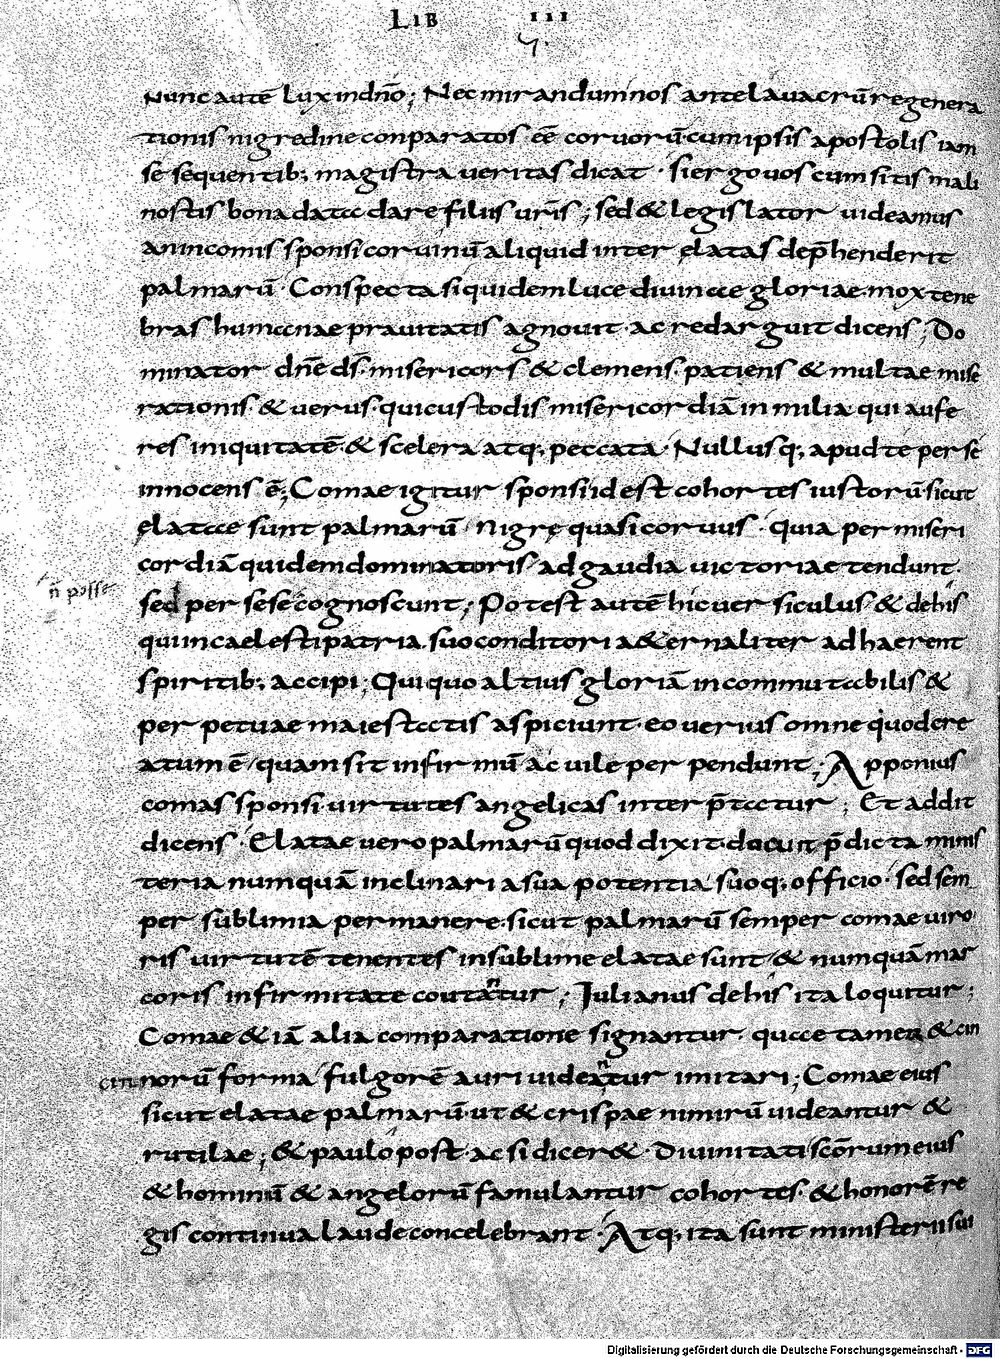 LIB III
nunc autē lux in dn̄o; Nec mirandum nos ante lauacrū regenera
tionis nigredine conparatos eē coruorū cum ipsis apostolis iam
se sequentib; magistra ueritas dicat · si ergo uos cum sitis mali
nostis bona data dare filiis ur̄is; sed & legislator uideamus
an in comis sponsi coruinū aliquid inter elatas dep̄henderit
palmarū · Conspecta siquidem luce diuinae gloriae mox tene
bras humanae prauitatis agnouit · ac redarguit dicens; Do
minator dn̄e ds̄ · misericors & clemens · patiens & multae mise
rationis & uerus · qui custodis misericordiā in milia qui aufe
res iniquitatē · & scelera atq; peccata · Nullusq; apud te per se
innocens ē; Comae igitur sponsi id est cohortes iustorū sicut
elatae sunt palmarū nigrę quasi coruus · quia per miseri
cordiā quidem dominatoris ad gaudia uictoriae tendunt ·
n̄ posse
sed per sese cognoscunt; Potest autē hic uersiculus & de his
qui in caelesti patria · suo conditori a&ernaliter adhaerent
spiritib; accipi; Qui quo altius gloriā incommutabilis &
perpetuae maiestatis aspiciunt · eo uerius omne quod cre
atum ē / quam sit infirmū ac uile perpendunt; Apponius
comas sponsi uirtutes angelicas interp̄tatur; Et addit
dicens · Elatae uero palmarū quod dixit · docuit p̄dicta minis
teria numquā inclinari a sua potentia suoq; officio · sed sem
per sublimia permanere · sicut palmarū semper comae uiro
ris uirtutē tenentes in sublime elatae sunt & numquā mar
coris infirmitate coutantur; Iulianus de his ita loquitur;
Comae & iā alia comparatione signantur · quae tamen & cin
cin norū forma fulgorē auri uideantur imitari; Comae eius
sicut elatae palmarū ut & crispae nimirū uideantur &
rutilae; & paulo post · ac si dicer& · Diuinitati sc̄orum eius
& hominū & angelorū famulantur cohortes · & honorē re
gis continua laude concelebrant · Atq; ita sunt ministerii sui
Digitalisierung gefördert durch die Deutsche Forschungsgemeinschaft - DFG